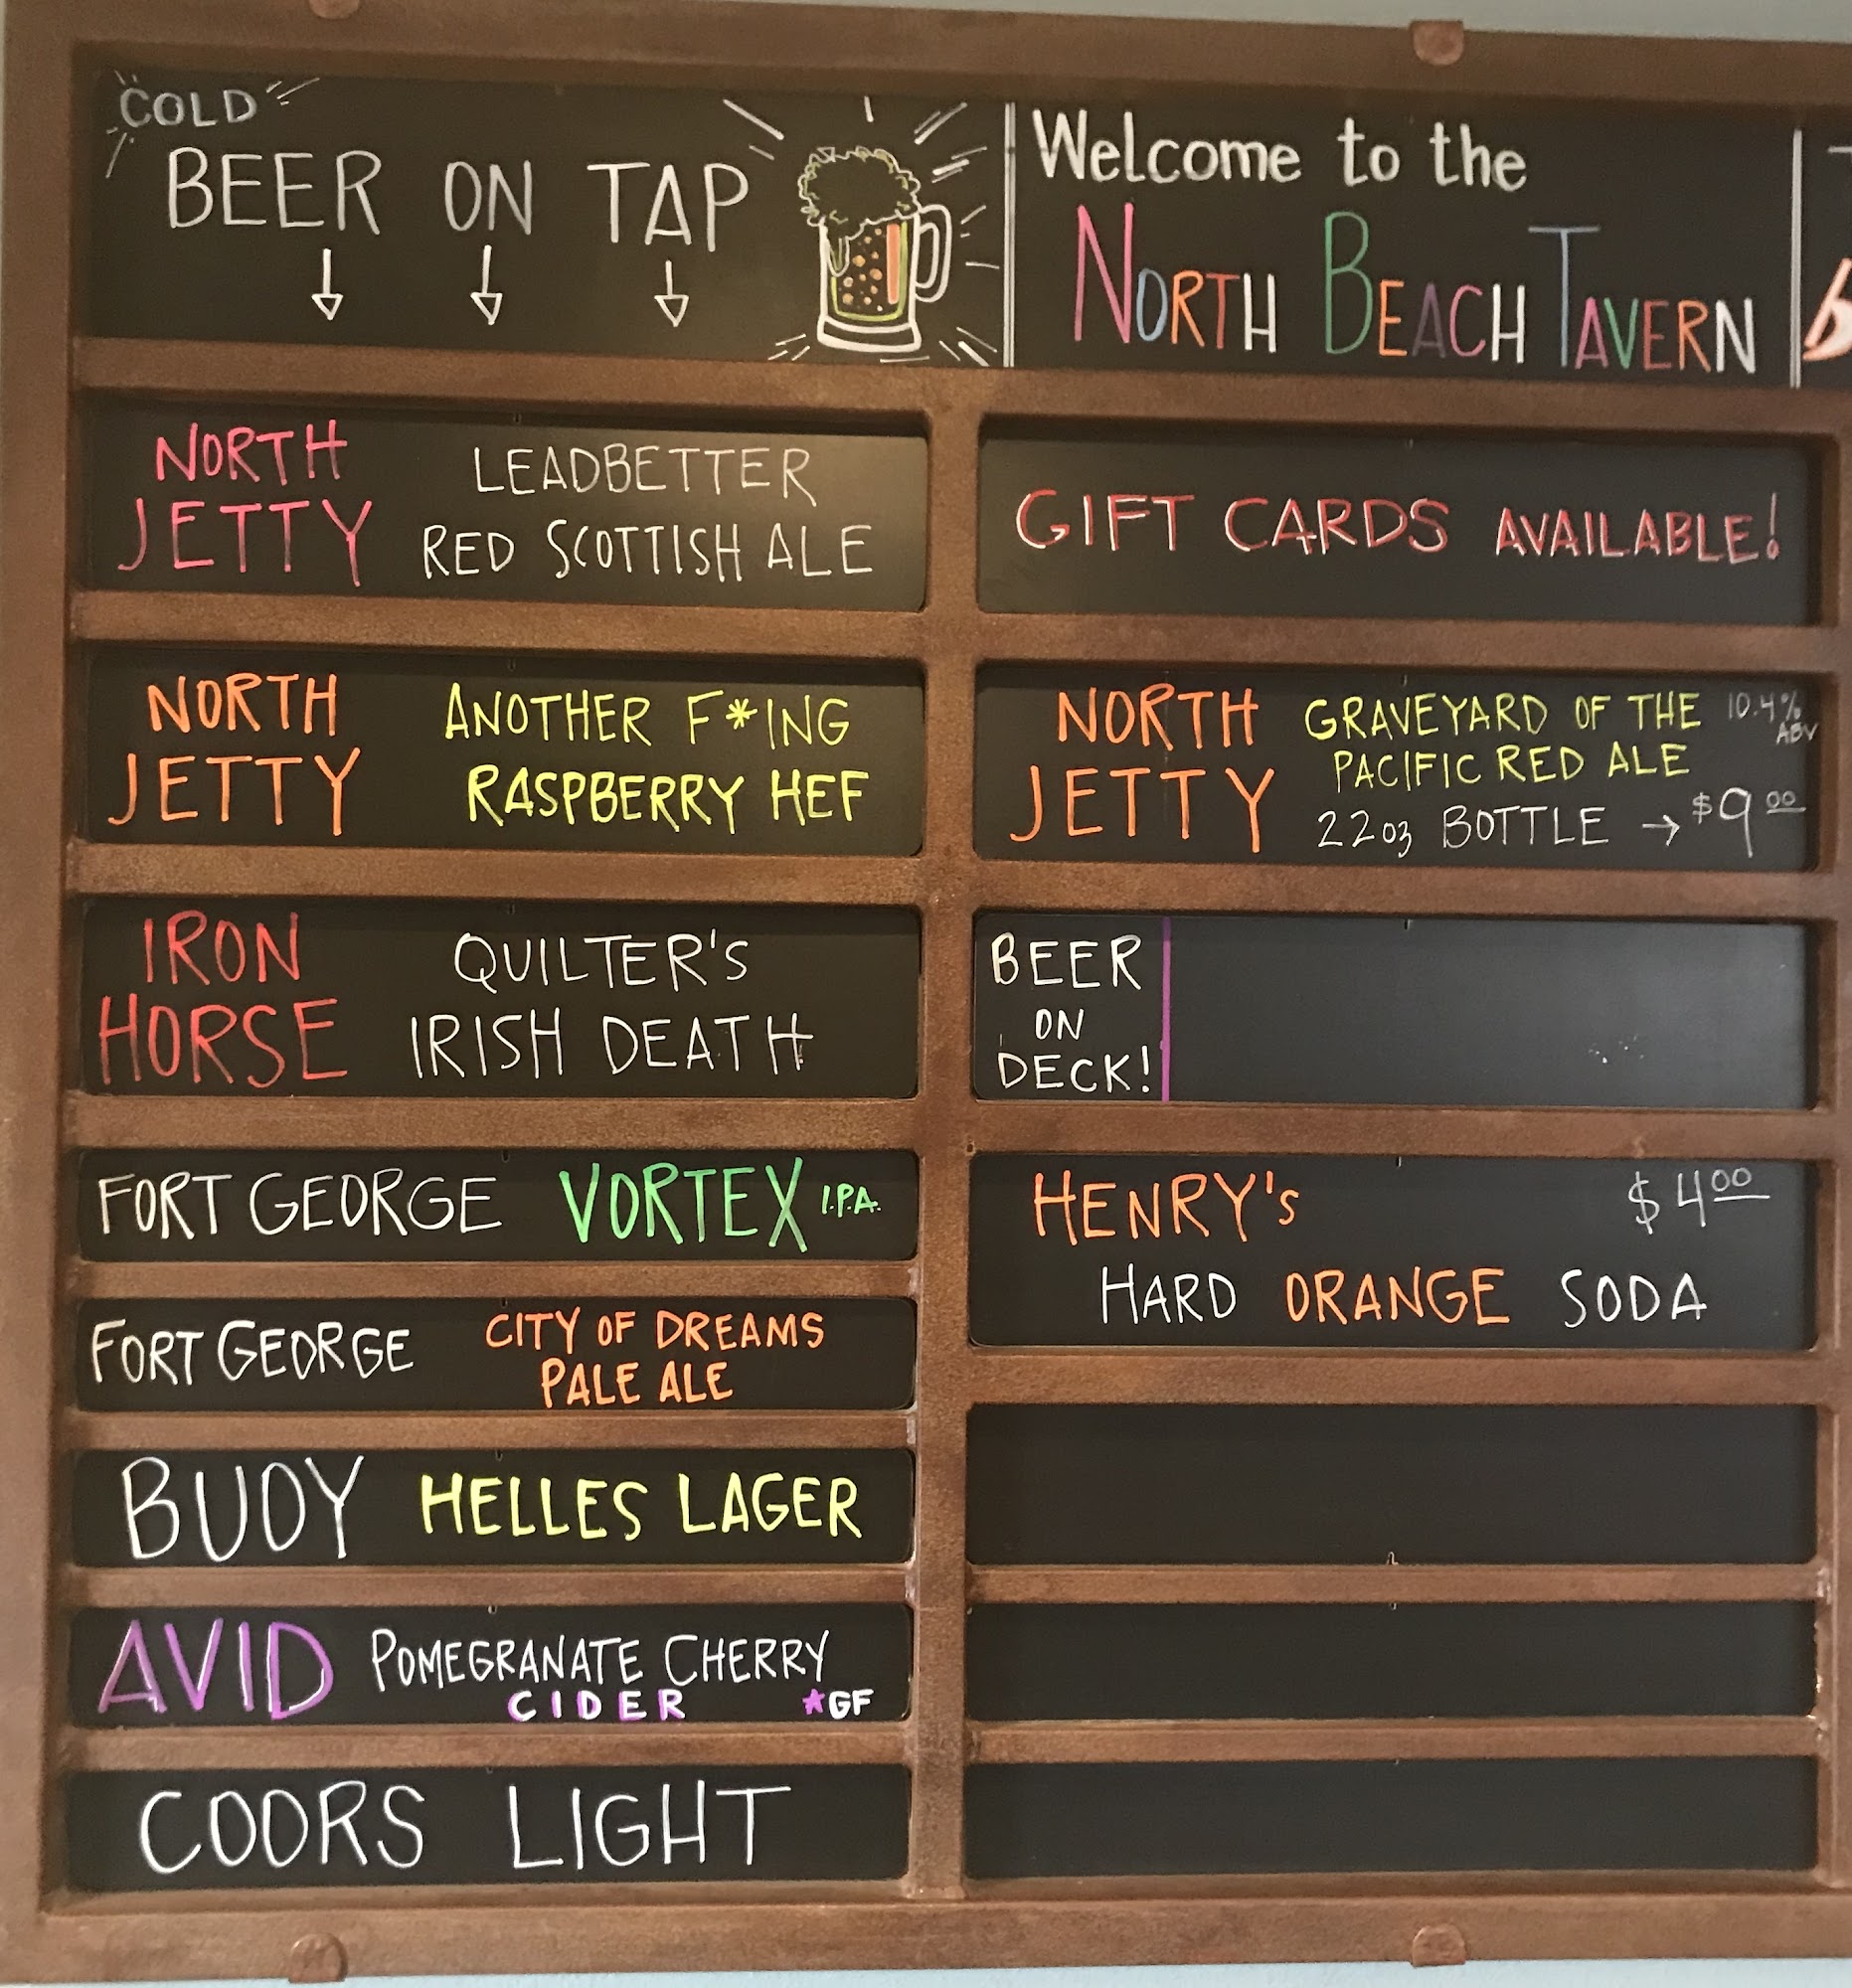 COLD
BEER ON TAP
Welcome to the
NORTH BEACH TAVERN
NORTH
JETTY
LEADBETTER
RED SCOTTISH ALE
NORTH
JETTY
ANOTHER F*ING
RASPBERRY HEF
IRON
HORSE
QUILTER'S
IRISH DEATH
FORT GEORGE VORTEX I.P.A.
FORT GEORGE
CITY OF DREAMS
PALE ALE
BUOY HELLES LAGER
AVID
POMEGRANATE CHERRY
CIDER *GF
COORS LIGHT
GIFT CARDS AVAILABLE!
NORTH
JETTY
GRAVEYARD OF THE
PACIFIC RED ALE
10.4%
ABV
22oz BOTTLE → $9 00
BEER
ON
DECK!
HENRY's $4 00
HARD ORANGE SODA